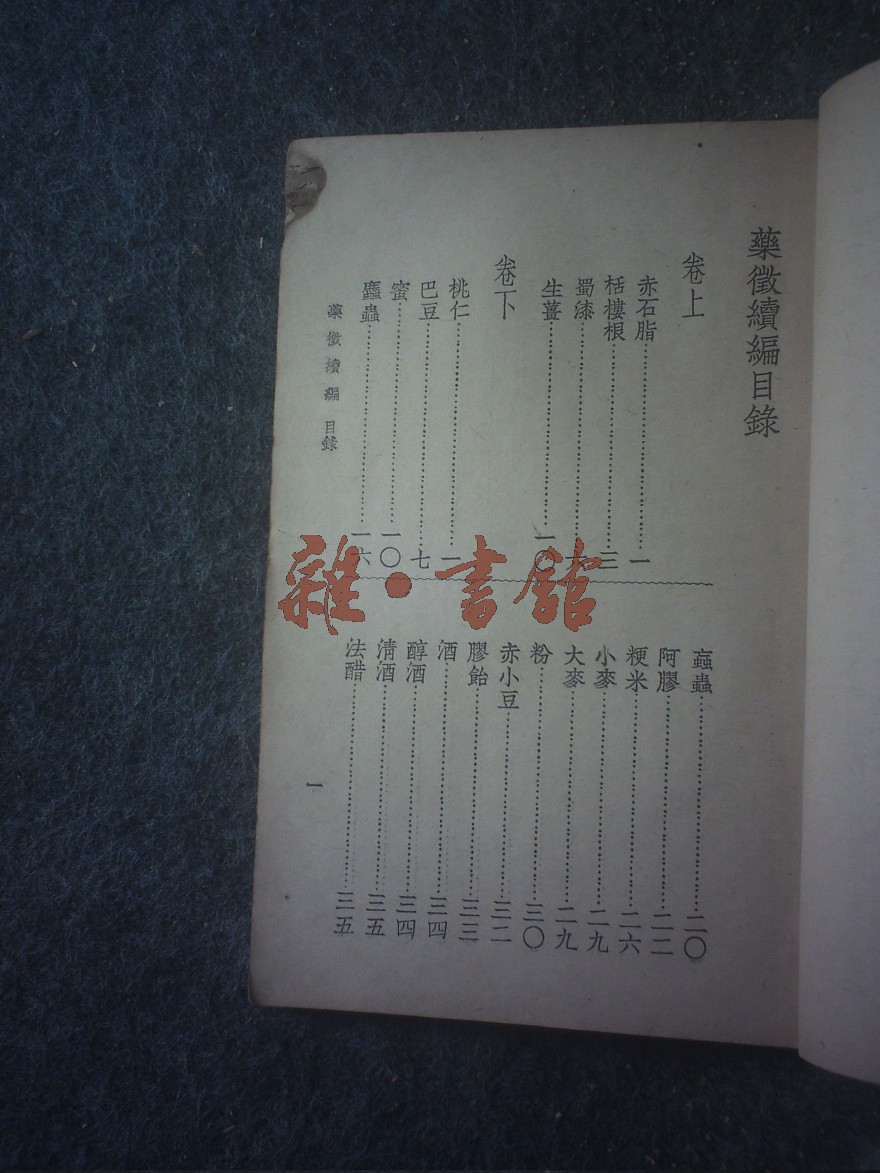 藥徵續編目錄
卷上
赤石脂……一
栝樓根……三
蜀漆……六
生薑……一〇
卷下
桃仁……一
巴豆……七
蜜……一〇
䗪蟲……一六
蝱蟲……二〇
阿膠……二二
粳米……二六
小麥……二九
大麥……二九
粉……三〇
赤小豆……三二
膠飴……三三
酒……三四
醇酒……三四
清酒……三五
法醋……三五
藥徵續編 目錄
一
雜·書館